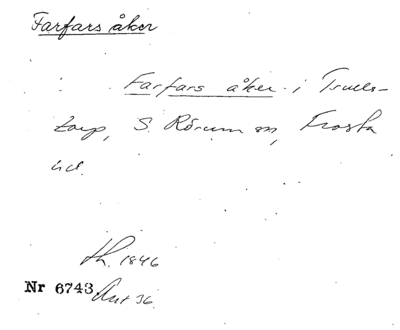 Farfars åker
Farfars åker i Truels-
torp, S. Rörum sn, Frosta
hd.
1846
Nr 6743
36.